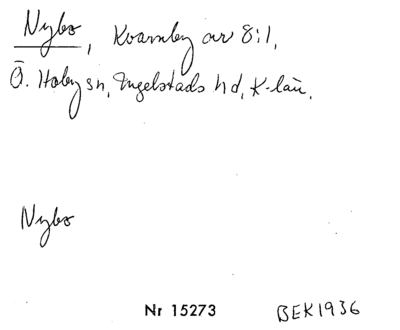 Nybo, Kvarnby av 8:1,
Ö. Hoby sn, Ingelstads hd, K-län.
Nybo
Nr 15273 BEK1936